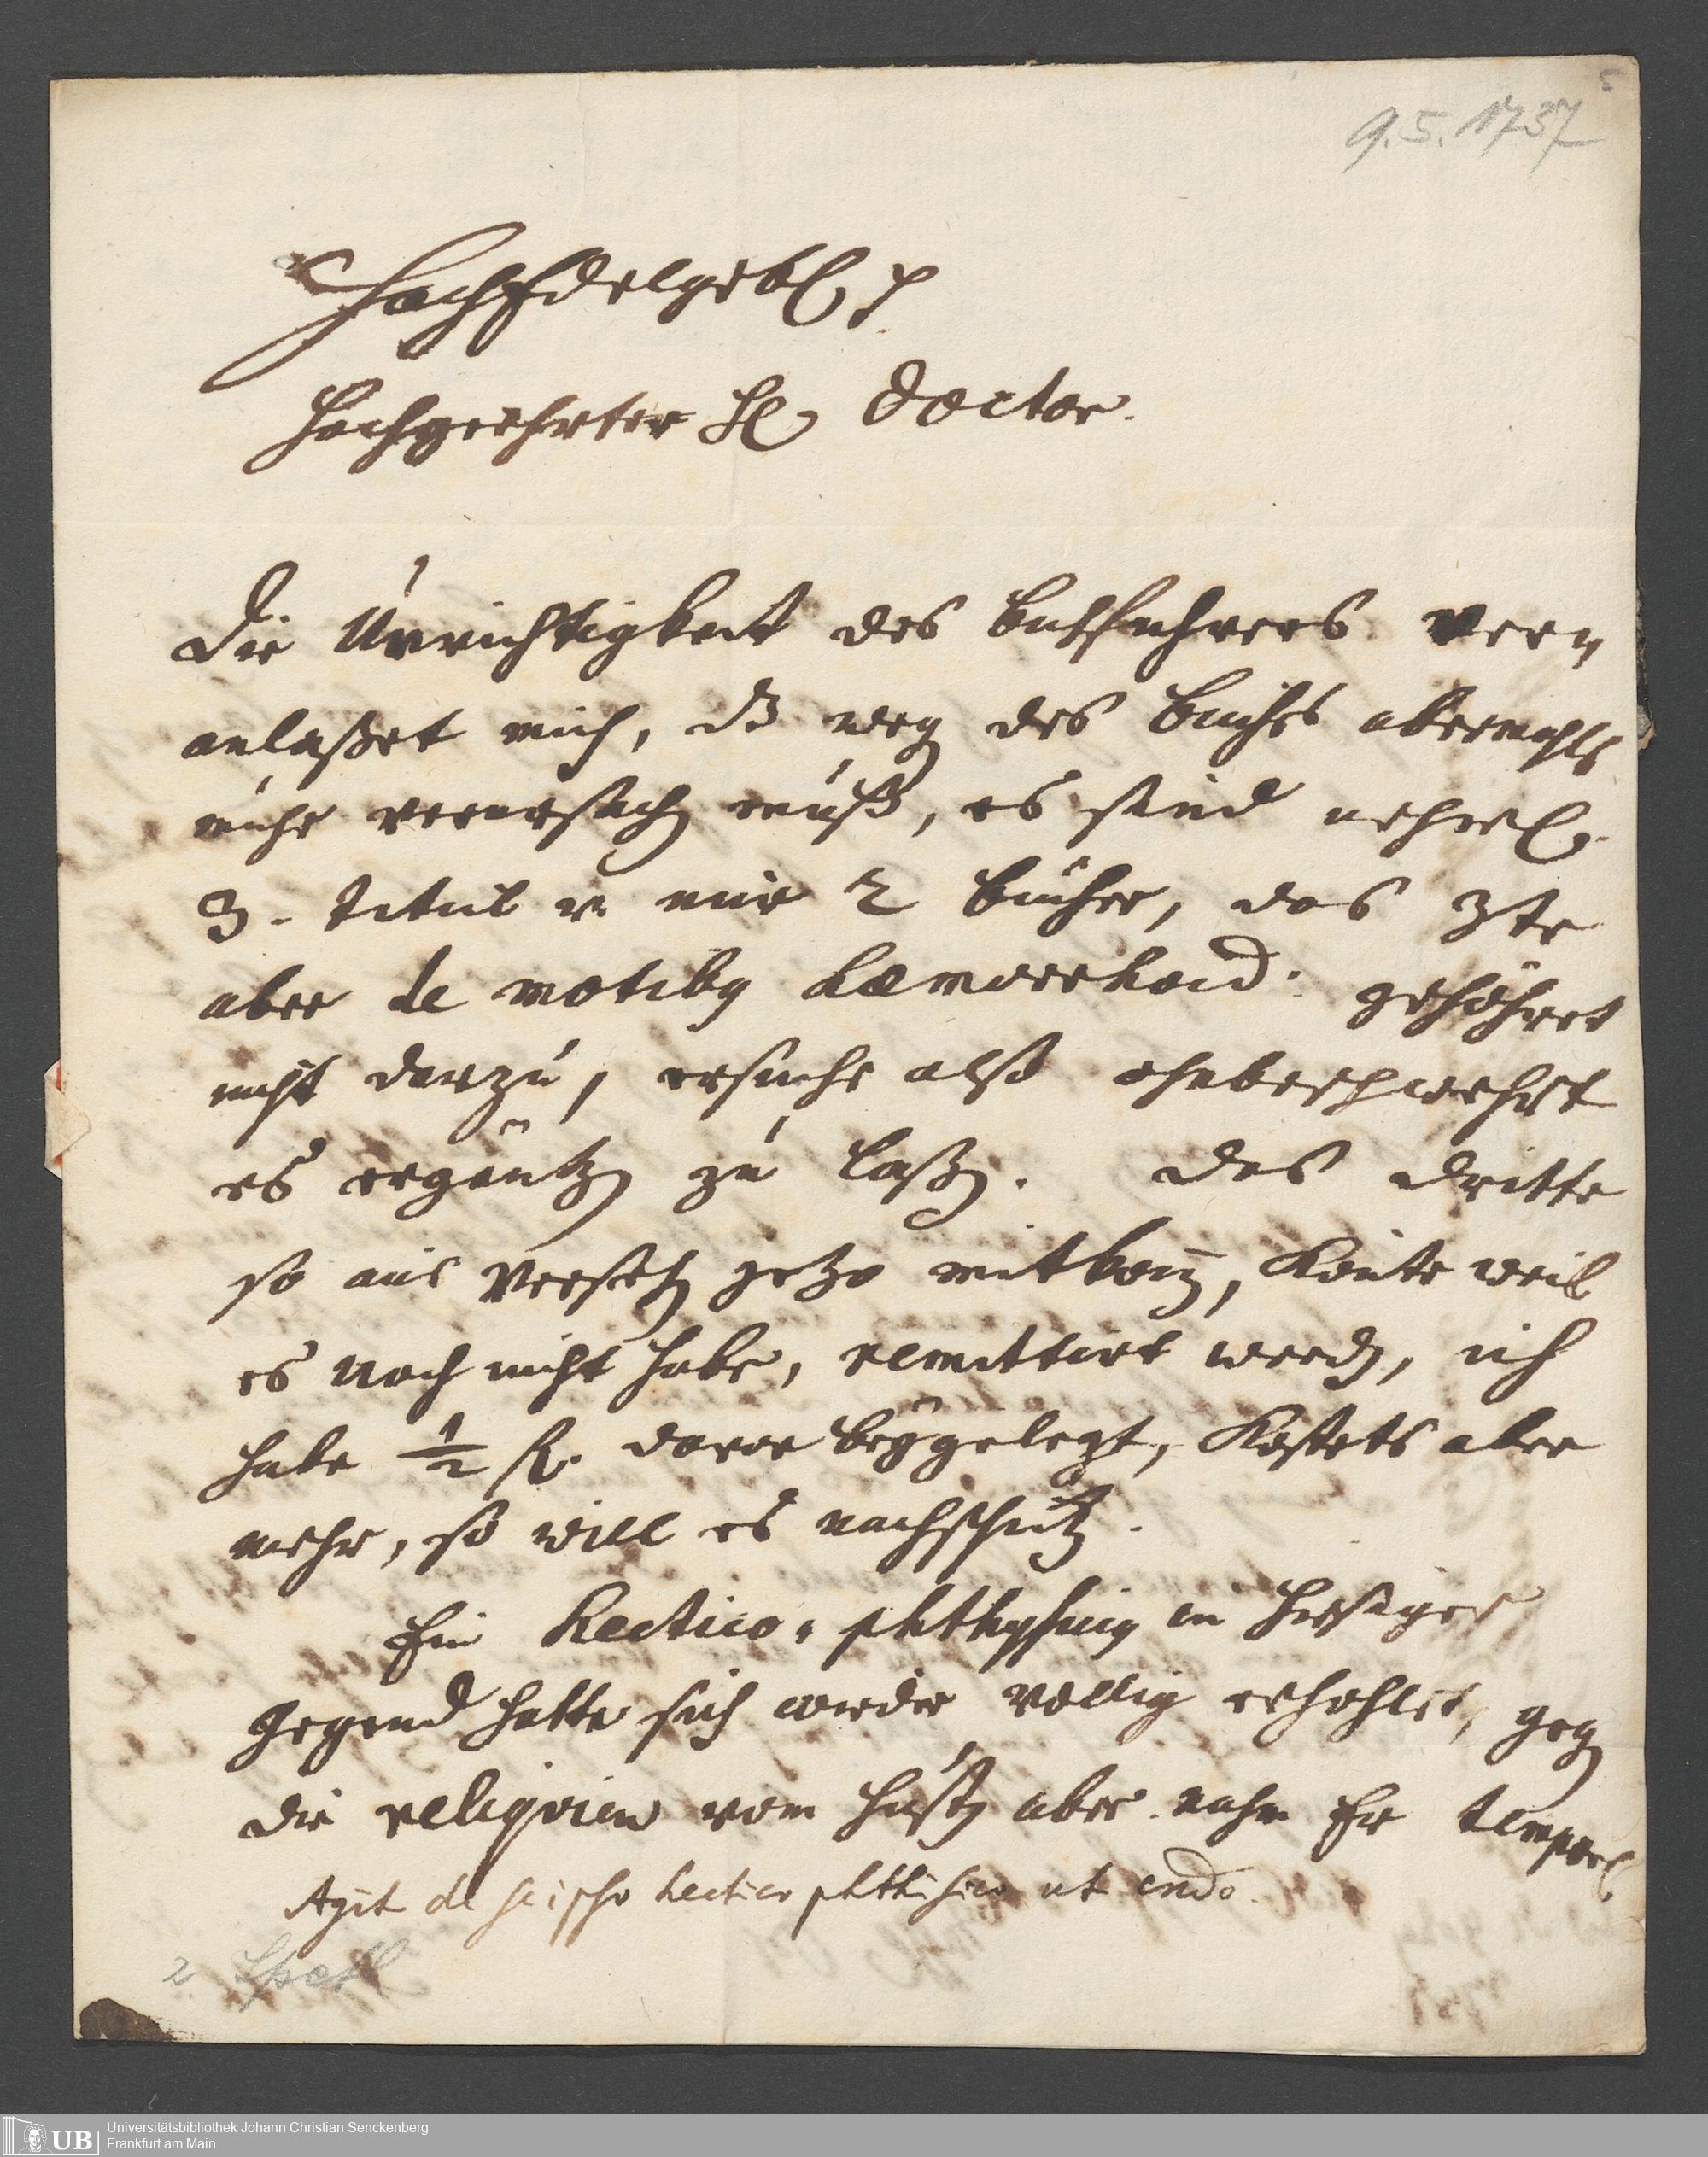 9.5.1737
5
HochEdelgebl. p
Hochgeehrter H. Doctor.
Die Unrichtigkeit des buchführers ver-
anlaßet mich, dß weg des buchs abermahls
mühe verursachen muß, es sind nehml.
3. titul u. nur 2 bücher, das 3te
aber de motibus haemorrhoid. gehöhret
nicht darzu, ersuche also ohnbeschwehrt
es ergäntzen zu laßen. das dritte
so aus Versehen jetzo mitkomen, könte weil
es noch nicht habe, remittirt werden, ich
habe ½ fl. davor beygelegt, kostets aber
mehr, so will es nachschicken.
Ein Hectico-phthysicus in hiesiger
gegend hatte sich wieder völlig erhohlet, gegen
die reliqvien vom husten aber nahm Er
Agit de se ipso hectico phthisico ut credo.
2.
UB
Universitätsbibliothek Johann Christian Senckenberg
Frankfurt am Main